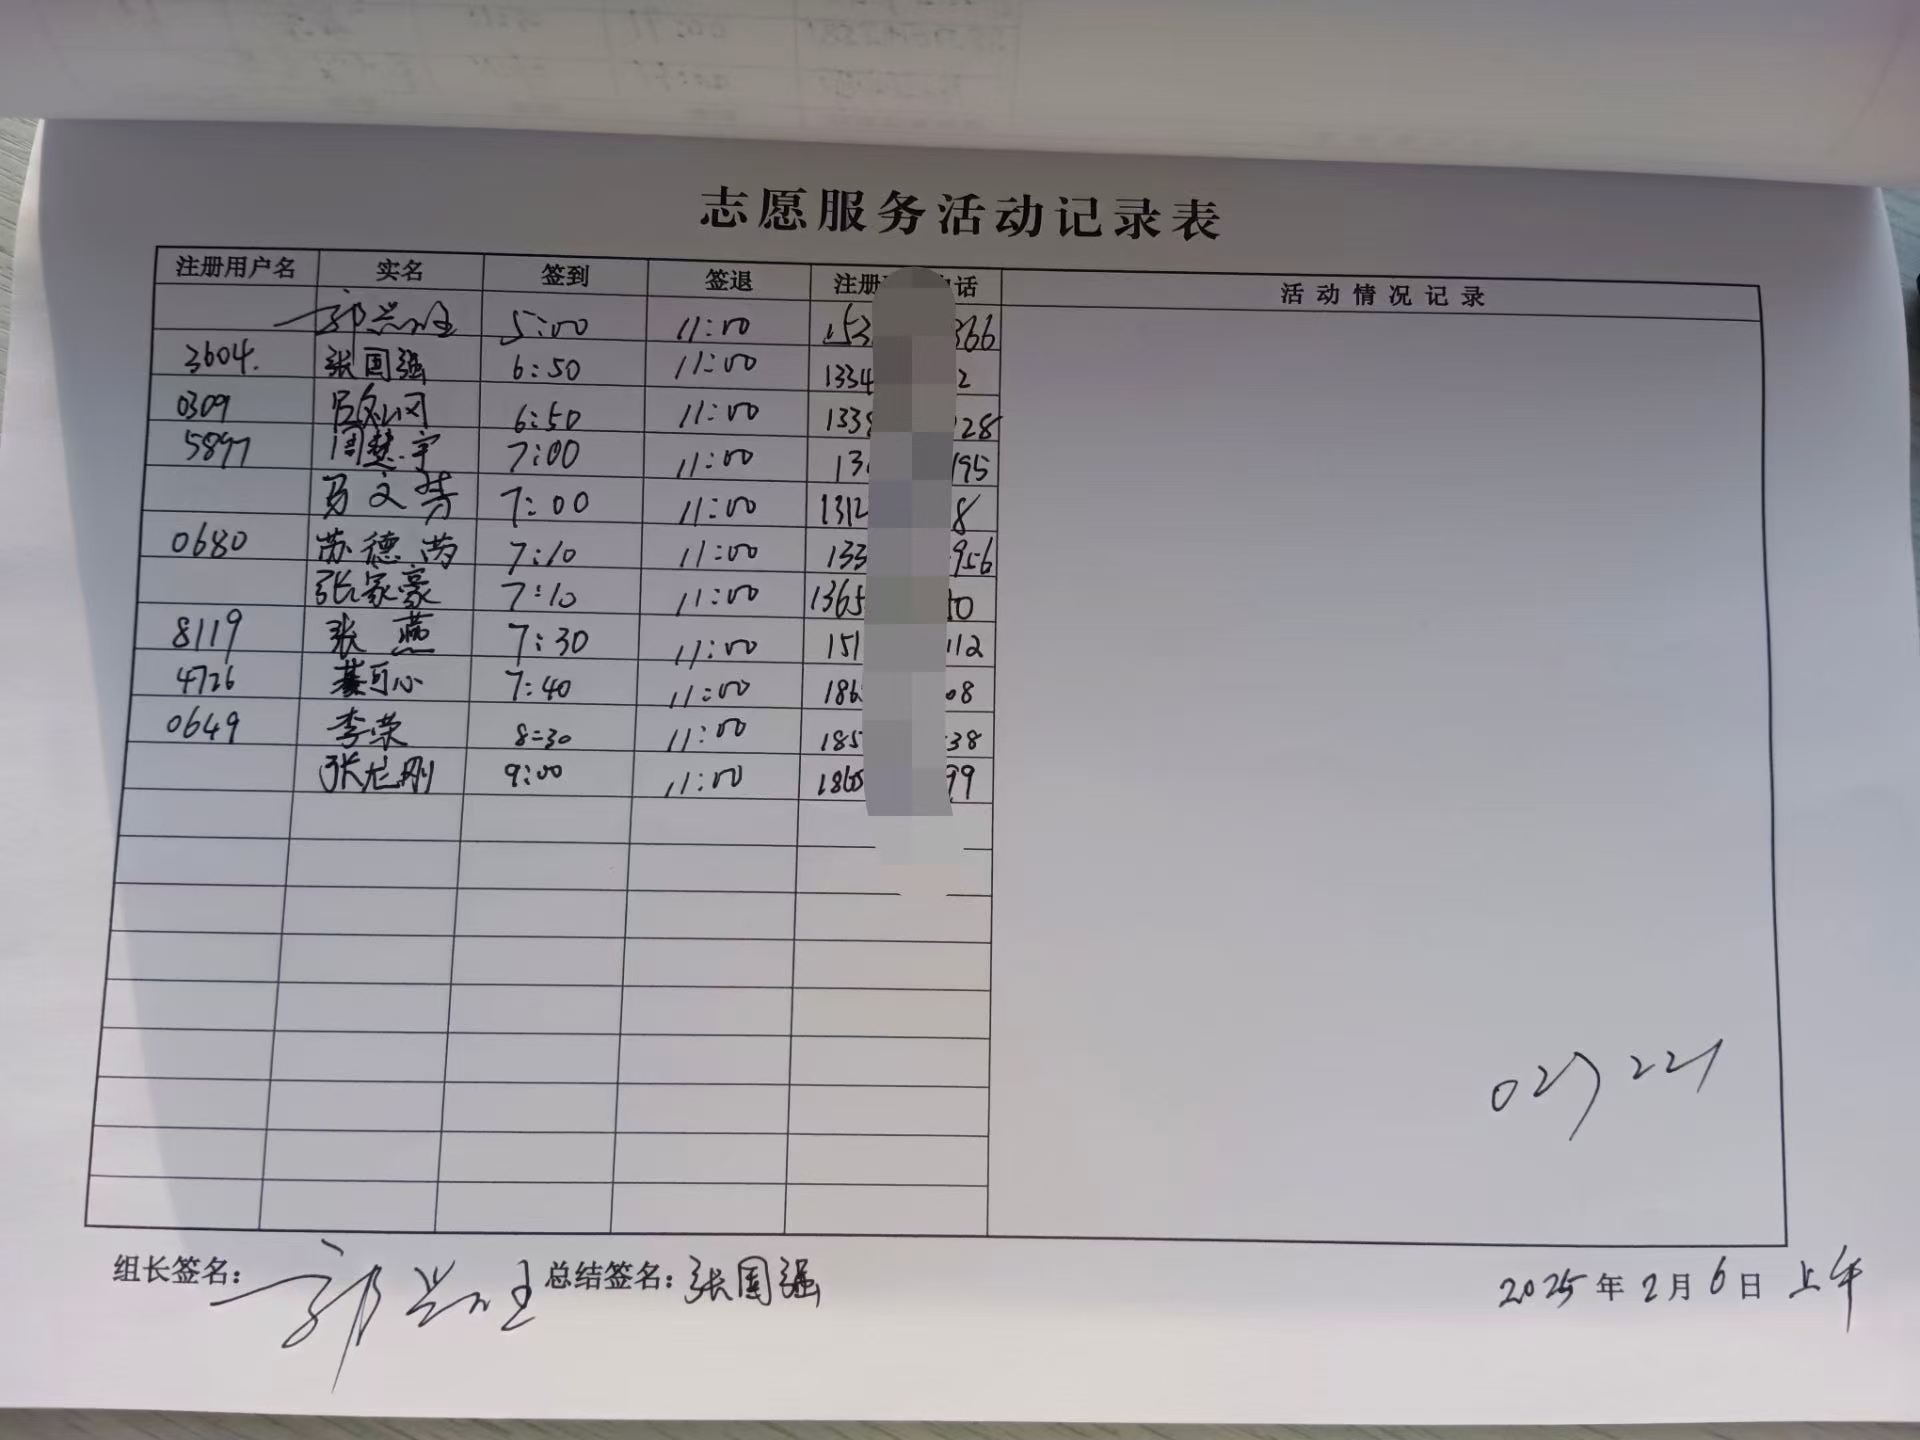 志愿服务活动记录表
注册用户名 实名 签到 签退 注册 话 活动情况记录
5:00 11:00 153 366
3604. 张国强 6:50 11:00 1334 2
0309 6:50 11:00 1338 128
5897 周楚宇 7:00 11:00 13 195
马文 7:00 11:00 1312 8
0680 苏德芮 7:10 11:00 133 956
张家豪 7:10 11:00 1365 50
8119 张燕 7:30 11:00 151 112
4726 綦可心 7:40 11:00 186 08
0649 李荣 8:30 11:00 185 38
张龙刚 9:00 11:00 1865 99
027221
组长签名: 总结签名:张国强
2025年2月6日 上午